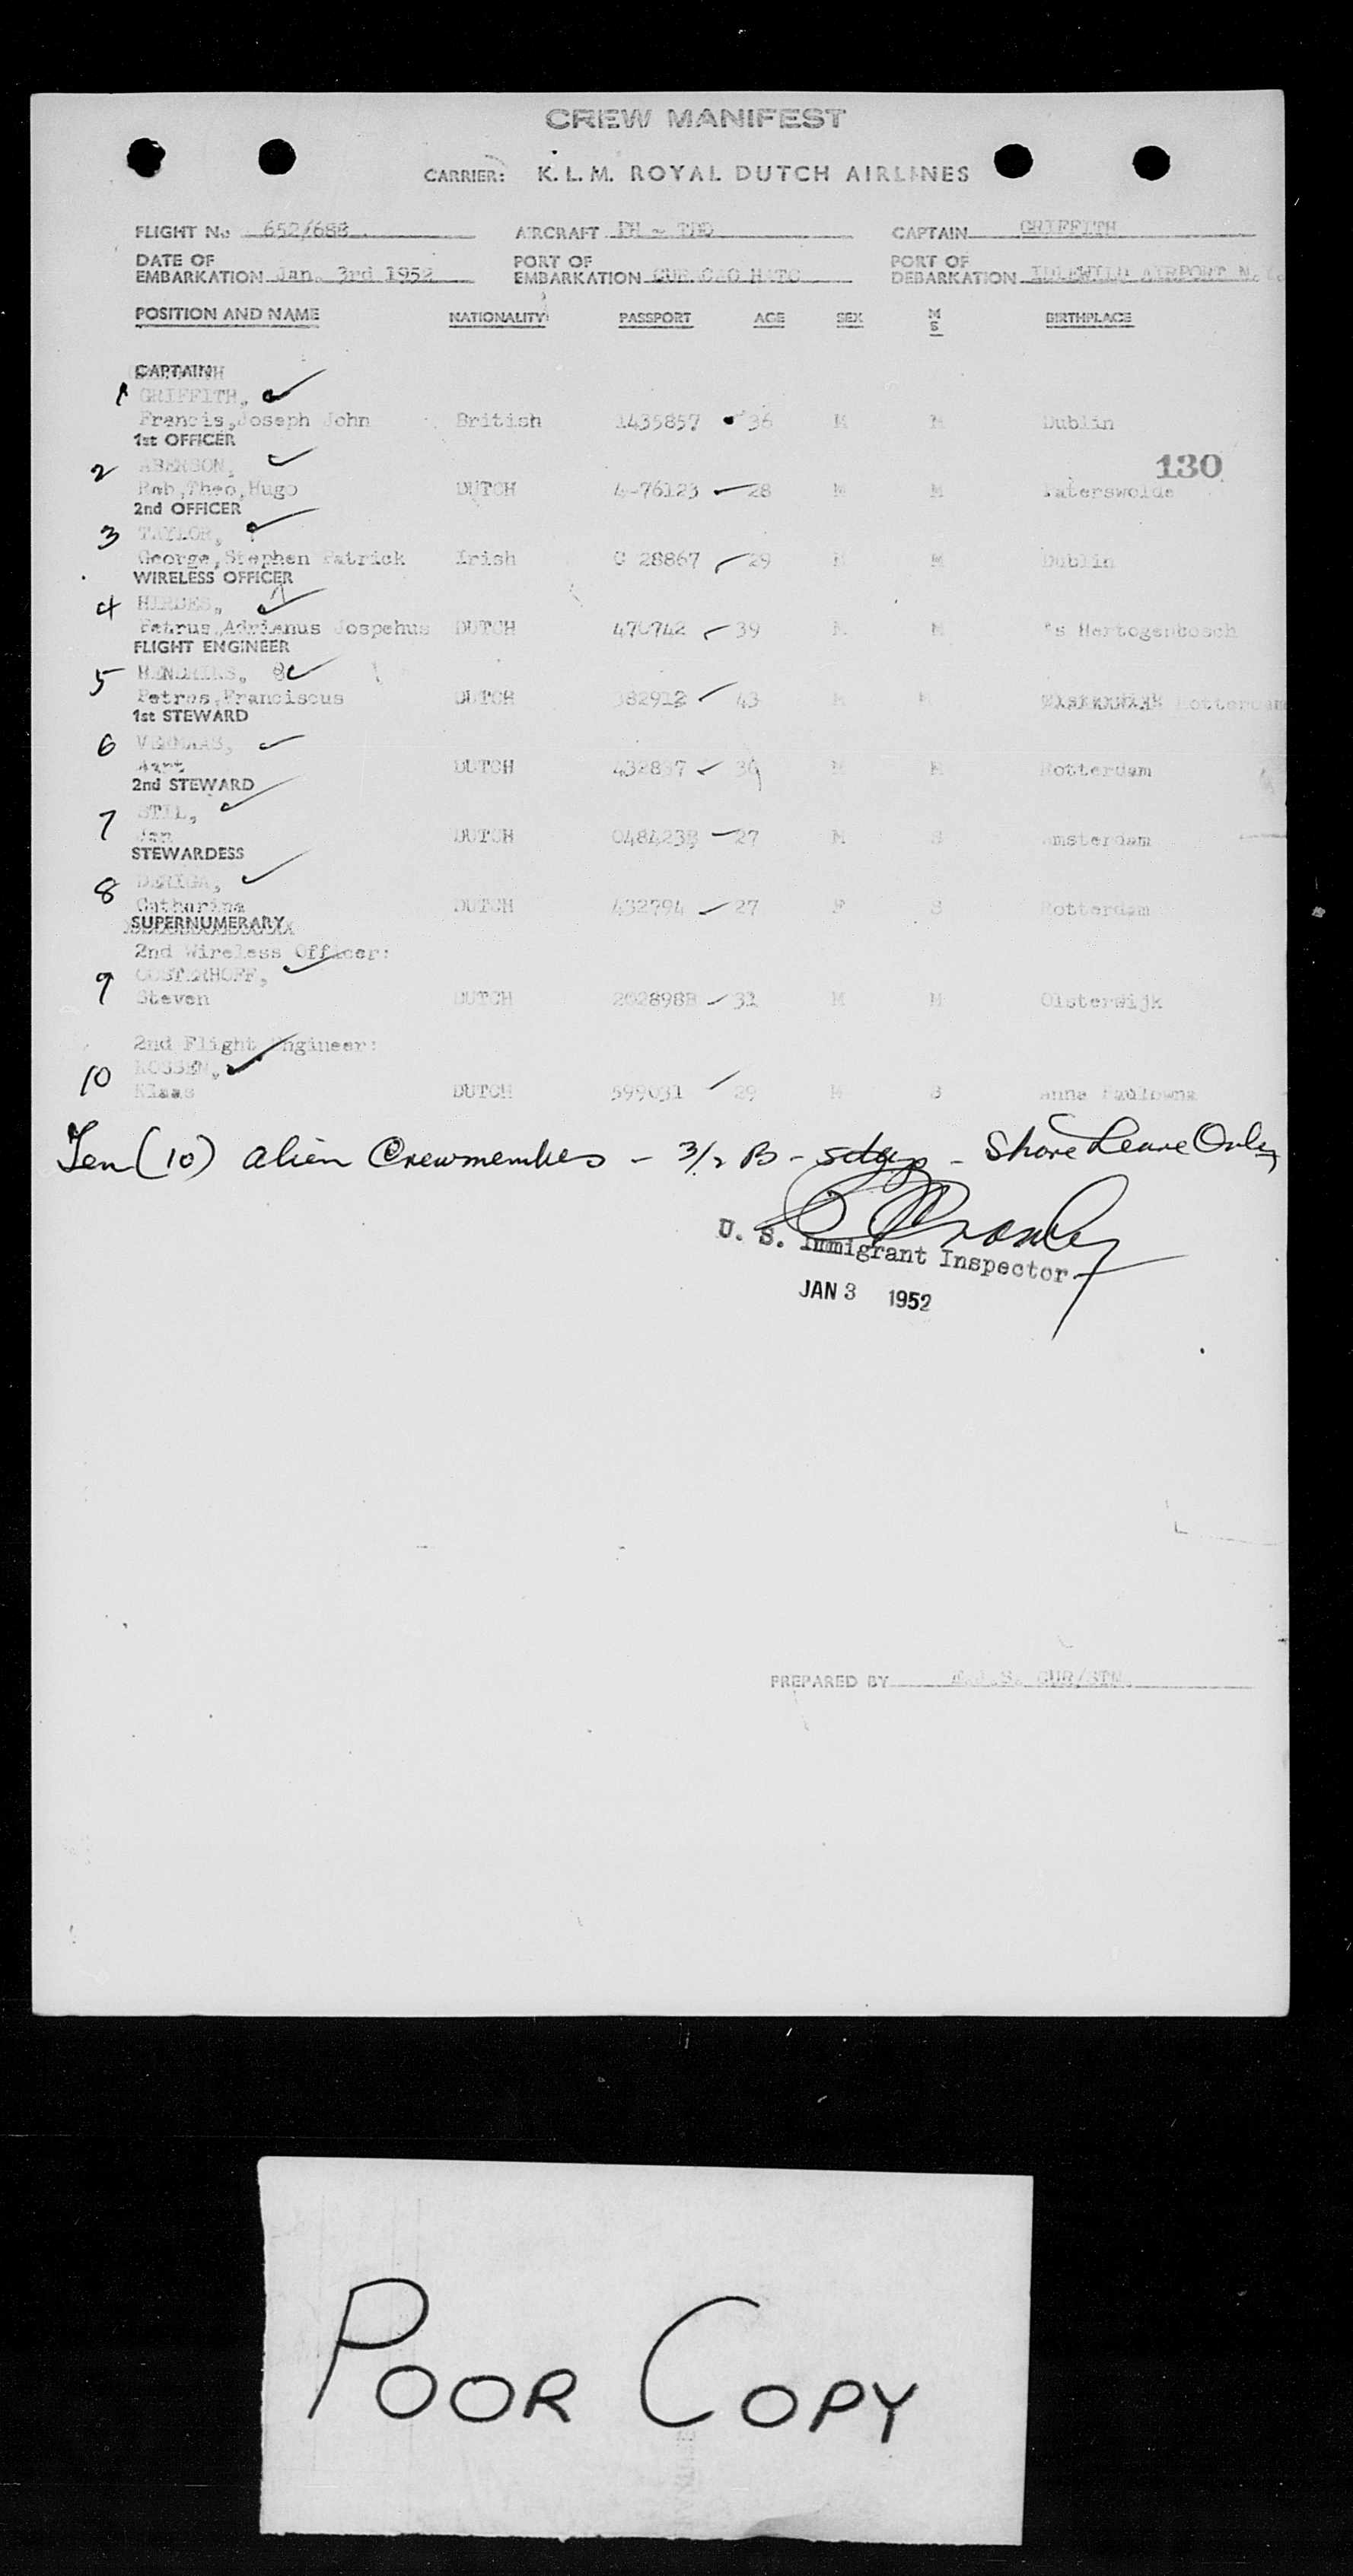 CREW MANIFEST
CARRIER: K. L. M. ROYAL DUTCH AIRLINES
FLIGHT No 652/688 AIRCRAFT PH - CAPTAIN GRIFFITH
DATE OF EMBARKATION Jan. 3rd 1952 PORT OF EMBARKATION CURACAO HATO PORT OF DEBARKATION IDLEWILD AIRPORT N.Y.
POSITION AND NAME NATIONALITY PASSPORT AGE SEX M S BIRTHPLACE
CAPTAIN
1 GRIFFITH,
Francis,Joseph John British 1435857 36 M M Dublin
1st OFFICER
130
2 ABERSON,
Rob,Theo,Hugo DUTCH 4-76123 28 M M Paterswolde
2nd OFFICER
3 TAYLOR,
George,Stephen Patrick Irish C 28867 29 M M Dublin
WIRELESS OFFICER
4 HIRDES,
Petrus,Adrianus Jospehus DUTCH 470742 39 M M 's Hertogenbosch
FLIGHT ENGINEER
5 HENDRIKS,
Petrus,Franciscus DUTCH 382912 43 M M Rotterdam
1st STEWARD
6 VERMAAS,
Aart DUTCH 432837 M M Rotterdam
2nd STEWARD
7 STIL,
Jan DUTCH 27 M S Amsterdam
STEWARDESS
8
Catharina DUTCH 432794 27 F S Rotterdam
SUPERNUMERARY
2nd Wireless Officer:
9 OOSTERHOFF,
Steven DUTCH 31 M M Oisterwijk
2nd Flight Engineer:
10 KOSSEN,
Klaas DUTCH 599031 29 M S Anna Paulowna
Ten (10) alien Crewmembes - 3/2 B - - Shore Leave Only
U. S. Immigrant Inspector
JAN 3 1952
PREPARED BY CUR/STN.
POOR COPY